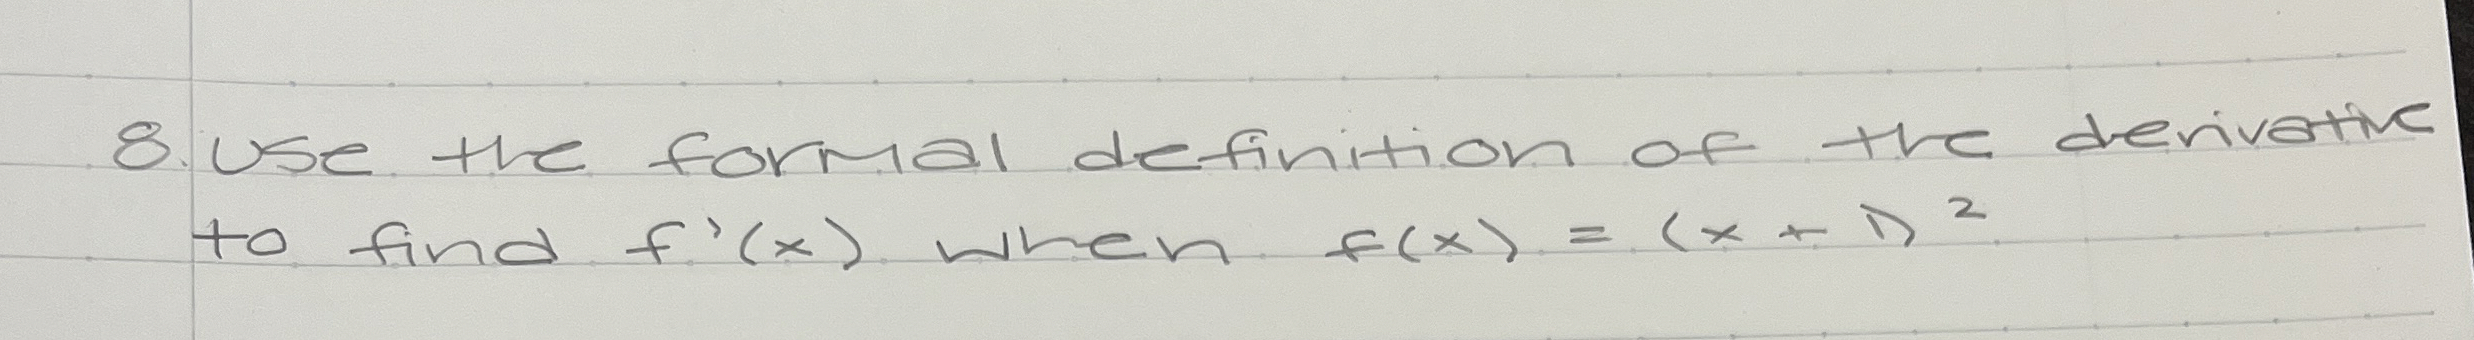 8. Use the formal definition of the derivative
to find f'(x) when f(x) = (x + 1)²